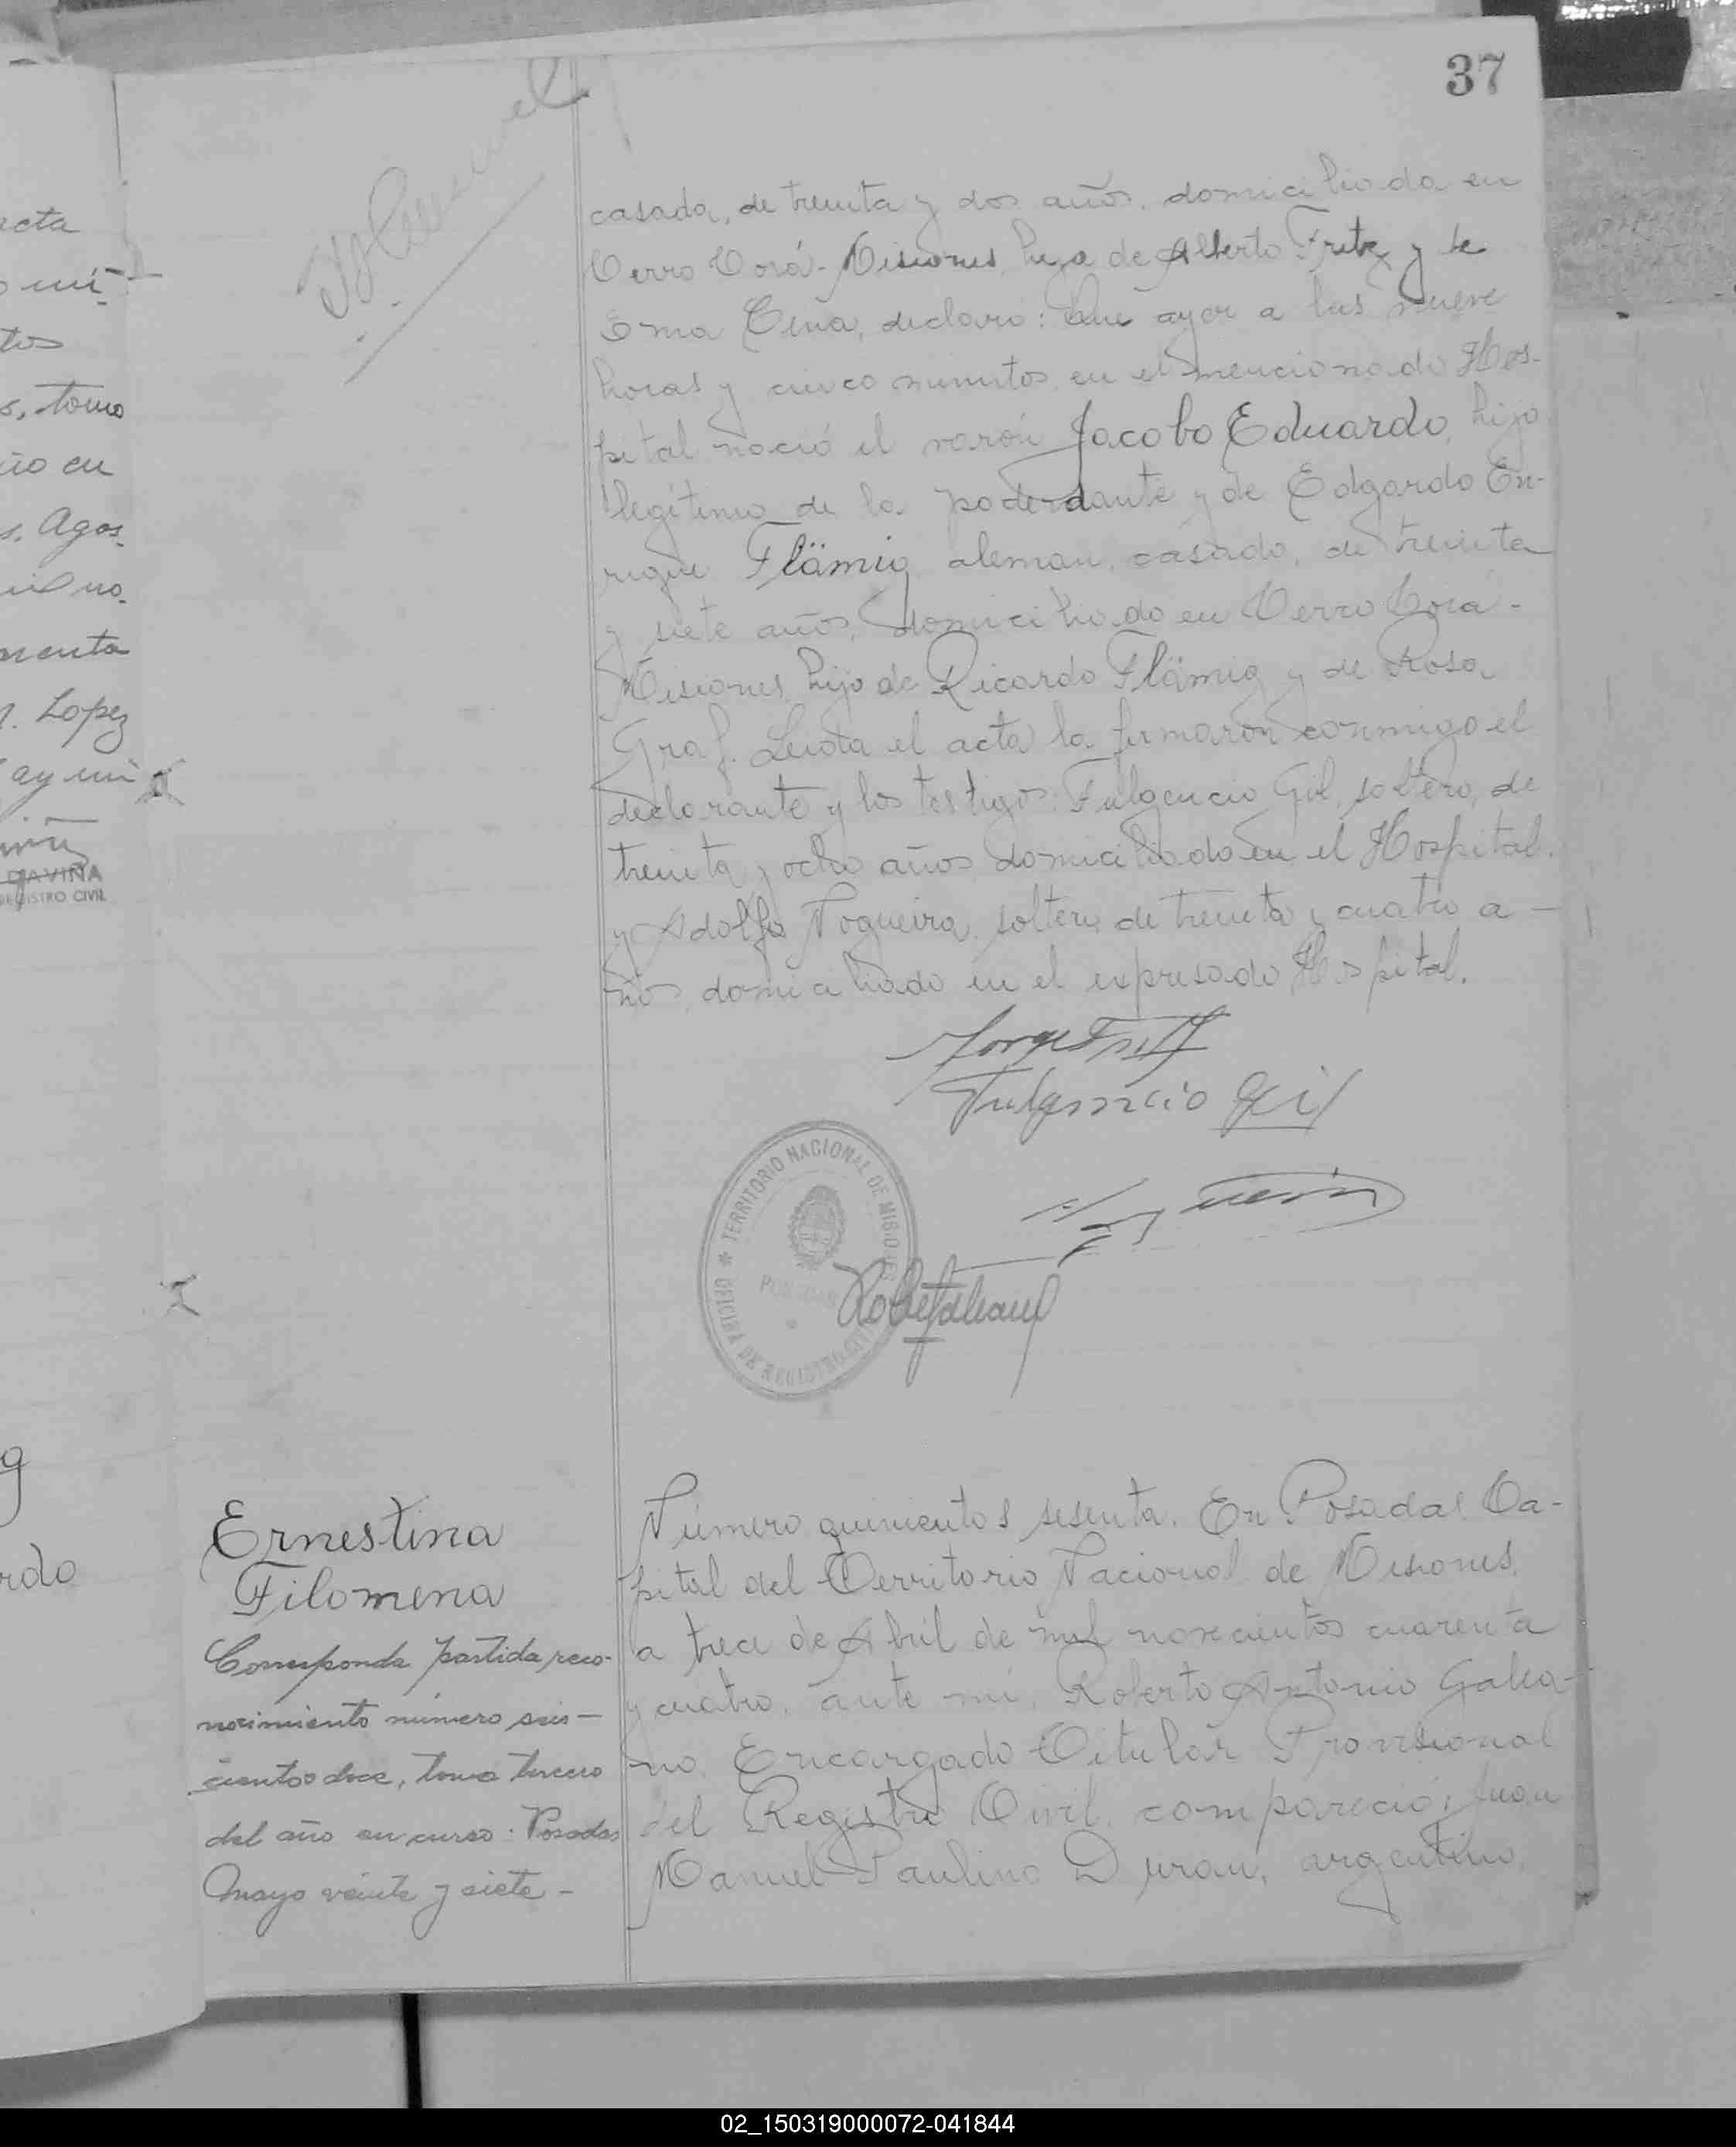 37
casada, de treinta y dos años, domiciliada en
Cerro Corá - Misiones, hija de Alberto Fritz y de
Ema, declaró: Que ayer a las nueve
horas y cinco minutos en el mencionado Hos-
pital nació el varón Jacobo Eduardo, hijo
legítimo de la poderdante y de Edgardo En-
rique Flämig, aleman, casado, de treinta
y siete años, domiciliado en Cerro Corá -
Misiones, hijo de Ricardo Flämig y de Rosa
Graf. Leida el acta la firmaron conmigo el
declarante y los testigos: Fulgencio Gil, soltero, de
treinta y ocho años domiciliado en el Hospital.
y Adolfo Nogueira, soltero de treinta y cuatro a-
ños, domiciliado en el expresado Hospital.
Jorge Fritz
Fulgencio Gil
TERRITORIO NACIONAL DE MISIONES
OFICINA DE REGISTRO CIVIL
POSADAS
Ernestina
Filomena
Corresponde partida reco-
nocimiento número seis-
cientos doce, tomo tercero
del año en curso. Posadas
Mayo veinte y siete -
Número quinientos sesenta. En Posadas Ca-
pital del Territorio Nacional de Misiones,
a trece de Abril de mil novecientos cuarenta
y cuatro, ante mi, Roberto Antonio Galea-
no, Encargado Titular Provisional
del Registro Civil, compareció: Juan
Manuel Paulino Duran, argentino,
acta
tos
s, tomo
ño en
s. Agos-
menta
M. Lopez
DAVIÑA
REGISTRO CIVIL
rdo
02_150319000072-041844